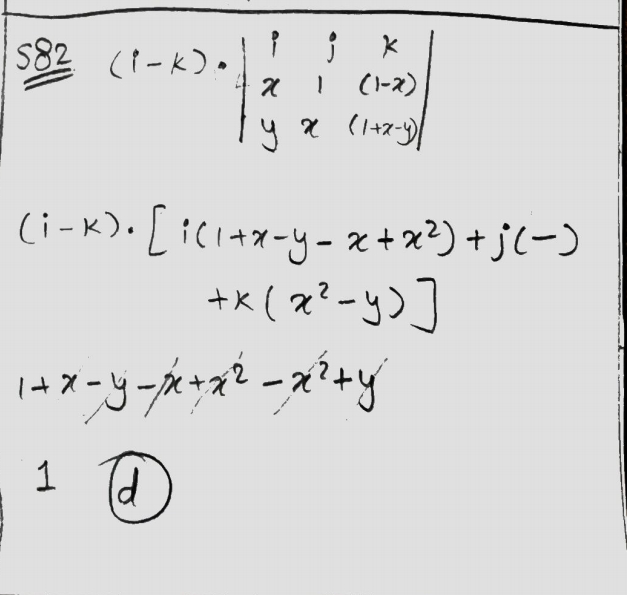 S82 (i-k)· | i j k |
| x 1 (1-x) |
| y x (1+x-y) |
(i-k)·[i(1+x-y-x+x²)+j(-)
+k(x²-y)]
1+x-y-x+x²-x²+y
1 d